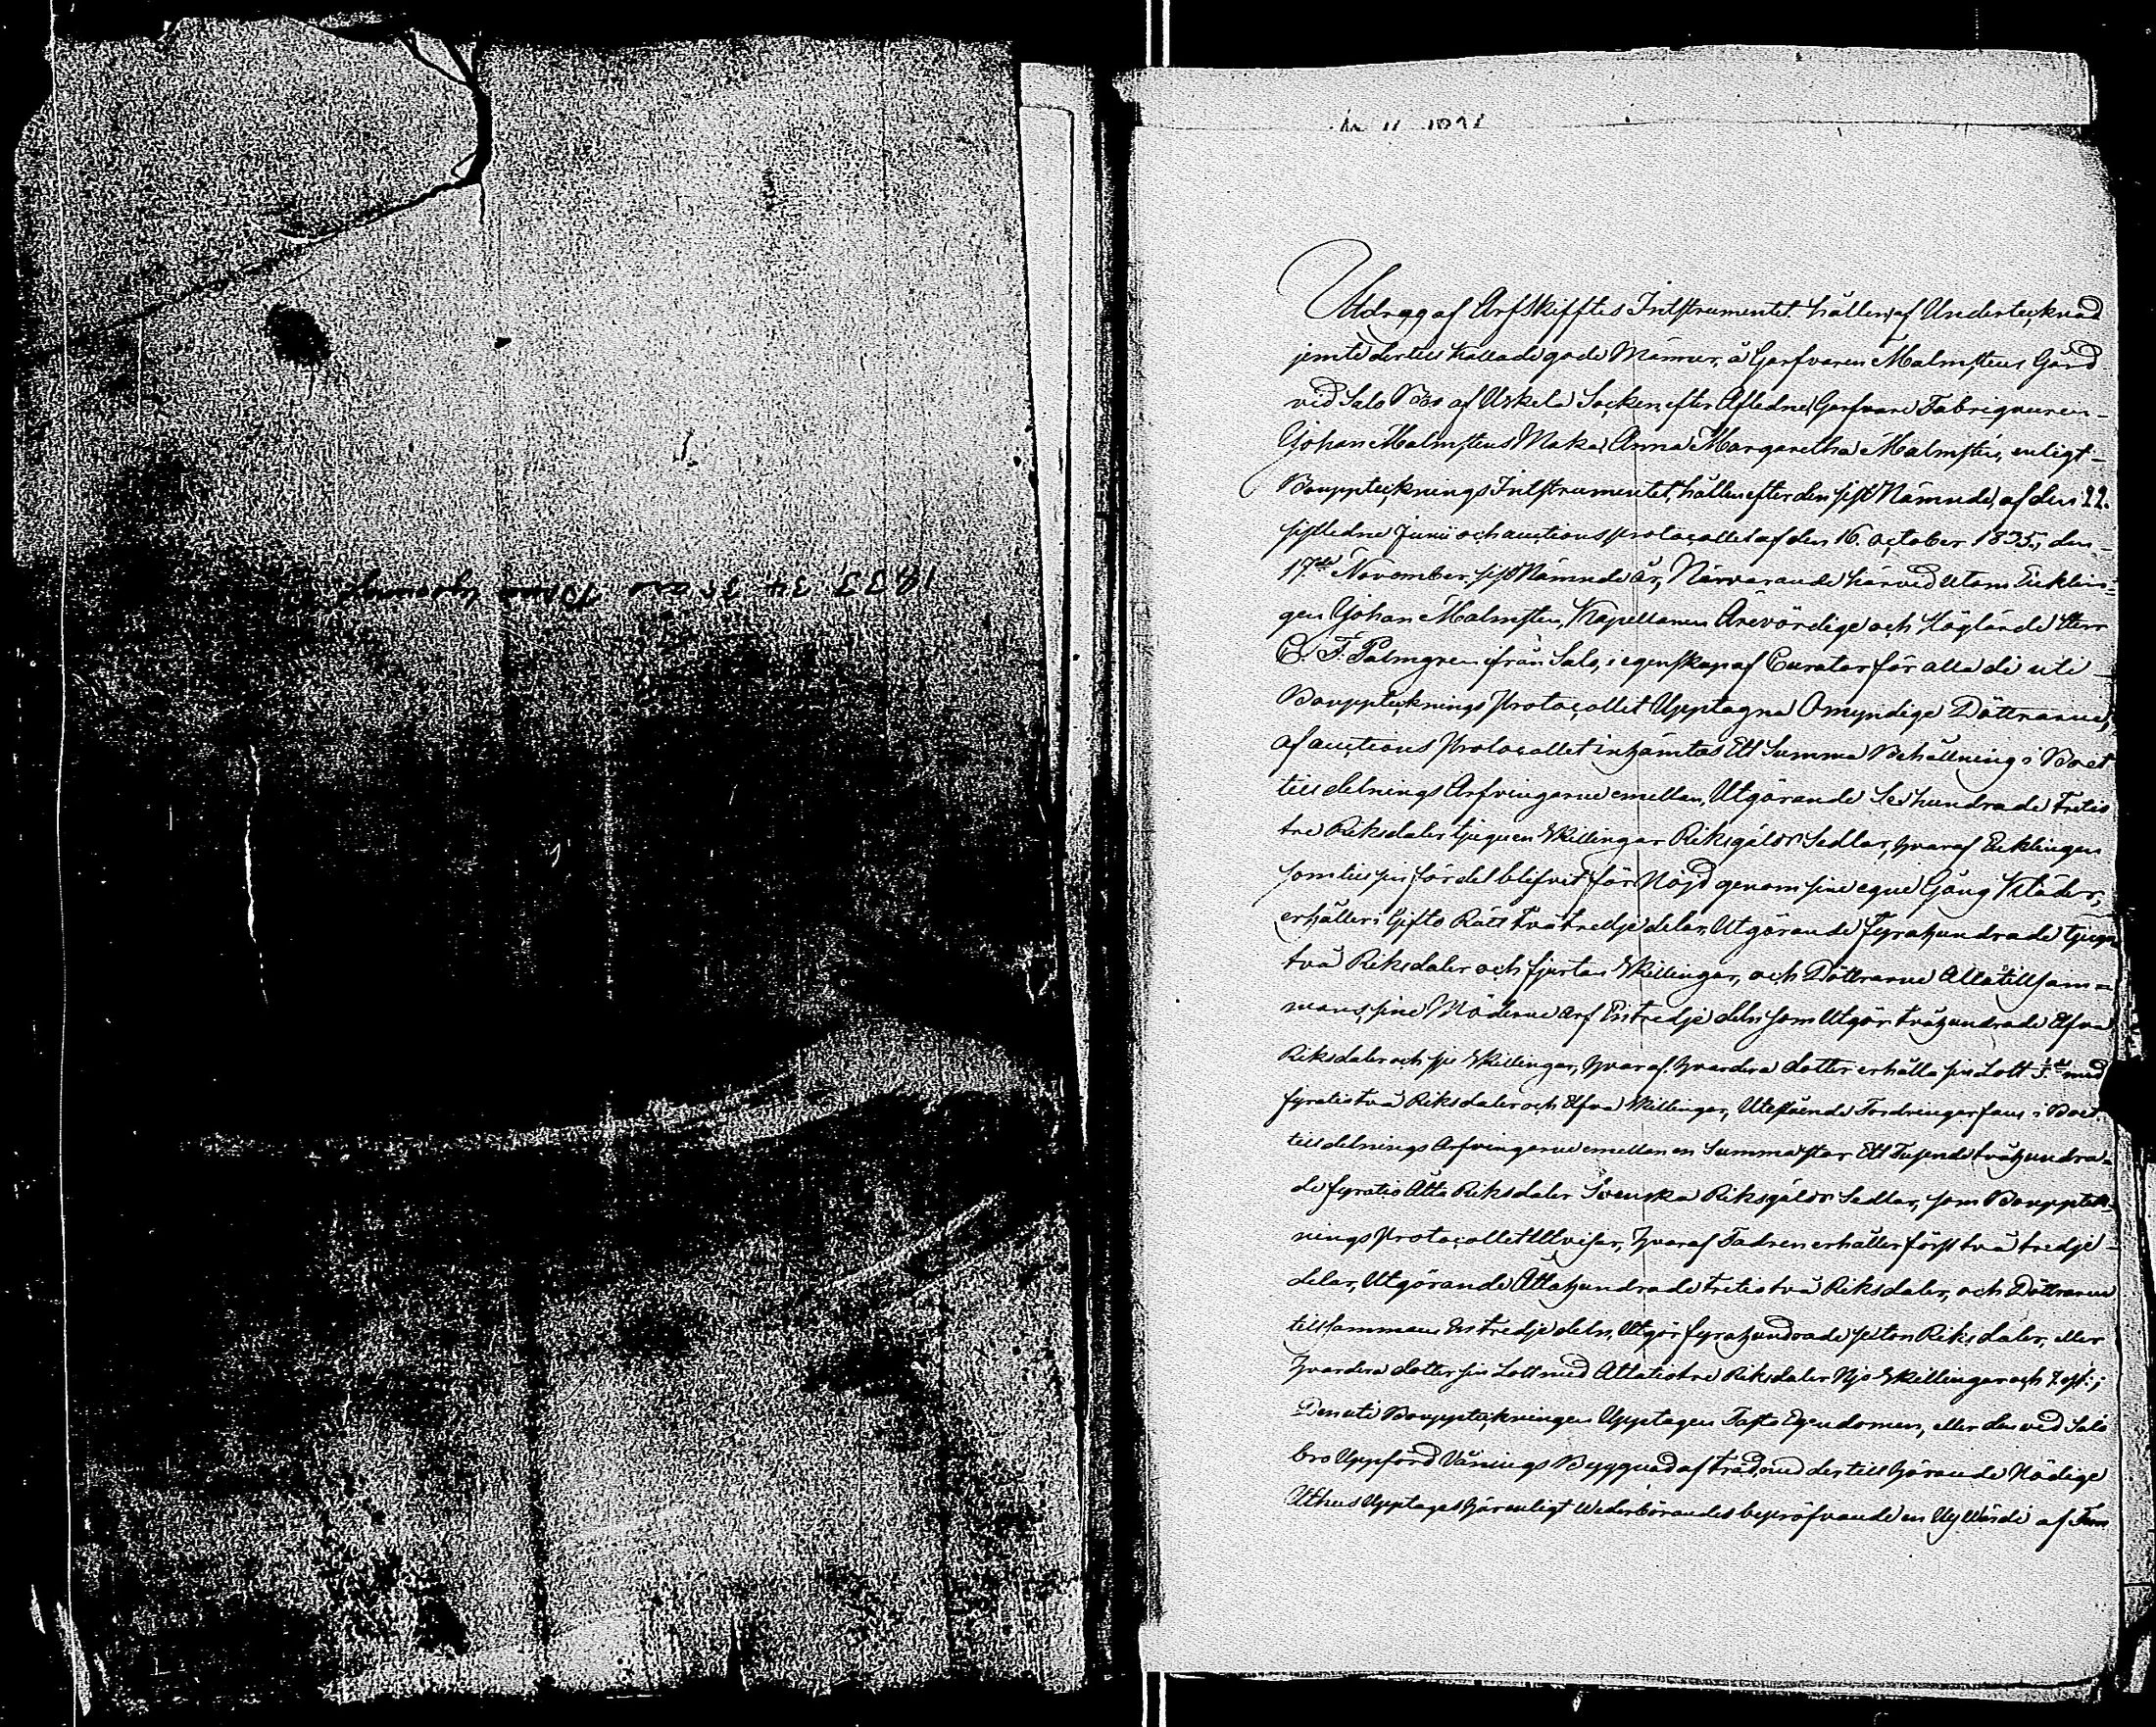 1833, 34, 35
Utdrag af Arfskifftes Instrumentet hållen af Undertecknad
jemte dertill kallade gode Männer, å Garfvaren Malmstens Gård
vid Salo Bro af Uskela Socken, efter Afledne Garfvare Fabriqueuren
Johan Malmstens Maka Anna Margaretha Malmsten, enligt
Bouppteknings Instrumentet, hållen efter den sist Nämnde, af den 22.
sistledne Junii och auctions protocollet af den 16. october 1835, den
17de November sist Nämnde år, Närvarande härvid utom Encklin-
gen Johan Malmsten, Kapellanen Ärevördige och Höglärde Herr
C. F. Palmgren ifrån Salo, i egenskap af Curator för alla de uti
Bouppteknings Protocollet Upptagna Omyndige Döttrarne,
af auctions Protocollet inhämtas Ett Summa Behållning i Boet
till delnings Arfvingarne emellan, Utgörande Sexhundrade Tretio
tre Riksdaler tjuguen Skillingar Riksgälds Sedlar, hvaraf Encklingen
som till sin fördel blifvit för Nöjd genom sine egne Gång Kläder,
erhåller i Gifto Rätt två tredje delar, Utgörande Fyrahundrade tjugu
två Riksdaler och fjorton Skillingar, och Döttrarne Alla tillsam-
mans, sine Möderne Arf En tredje deln som Utgör tvåhundrade Elfva
Riksdaler och sju Skillingar, hvaraf hvardera dotter erhålla sin Lott med
fyratiotvå Riksdaler och Elfva Skillingar, Utestående Fordringar fans i Boet,
till delnings Arfvingarne emellan en Summa stor Ett Tusende tvåhundra-
de fyratio Åtta Riksdaler Svenska Riksgälds Sedlar, som Bouppteck-
nings Protocollet Utvisar, hvaraf Fadren erhåller först två tredje
delar, Utgörande Åttahundrade tretiotvå Riksdaler, och Döttrarne
tillsammans En tredje deln, Utgör fyrahundrade sexton Riksdaler, eller
hvardera dotter sin Lott med Åttatiotre Riksdaler Nio Skillingar och 7. rst:;
Den uti Bouppteckningen Upptagen Fasta Egendomen, eller den vid Salo
bro Uppförd Vånings Byggnad af träd, med der till hörande Nödige
Uthus Upptages här enligt Wederbörandes bepröfvande en Ny Värde af Fem